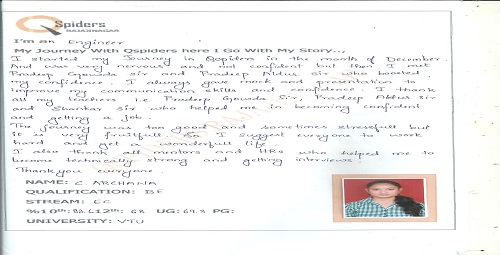 Qspiders
RAJAJINAGAR
I'm an Engineer
My Journey With Qspiders here I Go With My Story...
I started my Journey in Qspiders in the month of December.
And was very nervous and not confident but then I met
Pradeep Gowda sir and Pradeep sir who boosted
my confidence. I always gave mock and presentation to
improve my communication skills and confidence. I thank
all my teachers i.e Pradeep Gowda Sir, Pradeep Sir
and Shankar sir who helped me in becoming confident
and getting a job.
The journey was too good and sometimes stressfull but
it is very fruitfull. So I suggest everyone to work
hard and get a wonderfull life
I also thank all mentors and HRs who helped me to
become technically strong and getting interviews.
Thankyou everyone.
NAME: C. ARCHANA
QUALIFICATION: BE
STREAM: EC
%10th: 88.6 12th: 68 UG: 69.3 PG:
UNIVERSITY: VTU